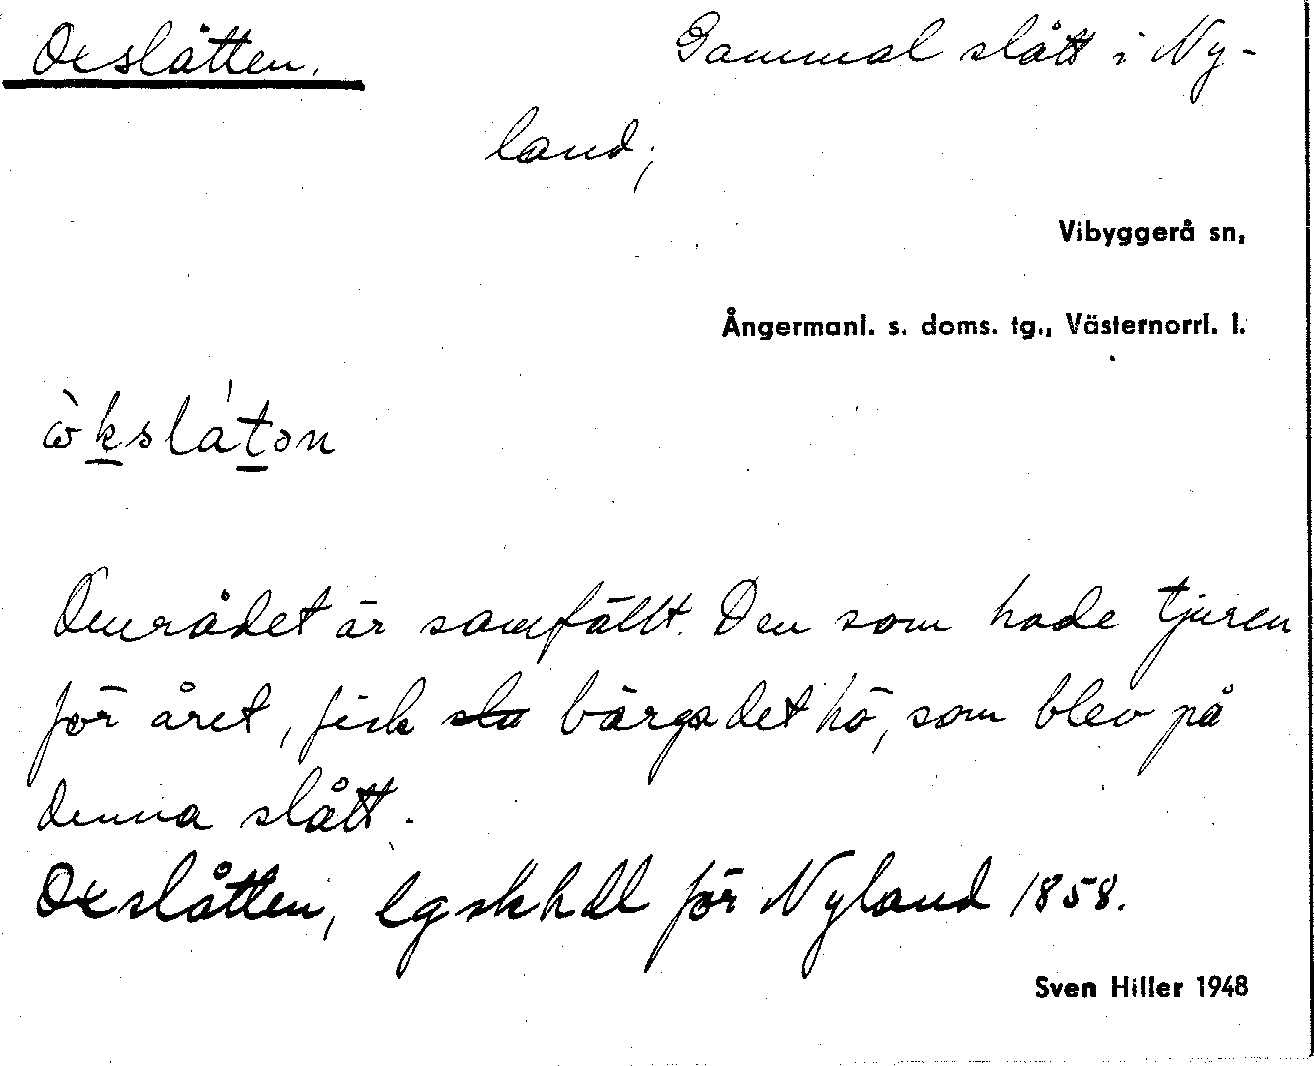 Oxslåtten. Gammal slått i Ny-
land;
Vibyggerå sn,
Ångermanl. s. doms. tg., Västernorrl. l.
ὼksláton
Området är samfällt. Den som hade tjuren
för året, fick sla bärga det hö, som blev på
denna slått.
Oxslåtten, lgskhdl för Nyland 1858.
Sven Hiller 1948